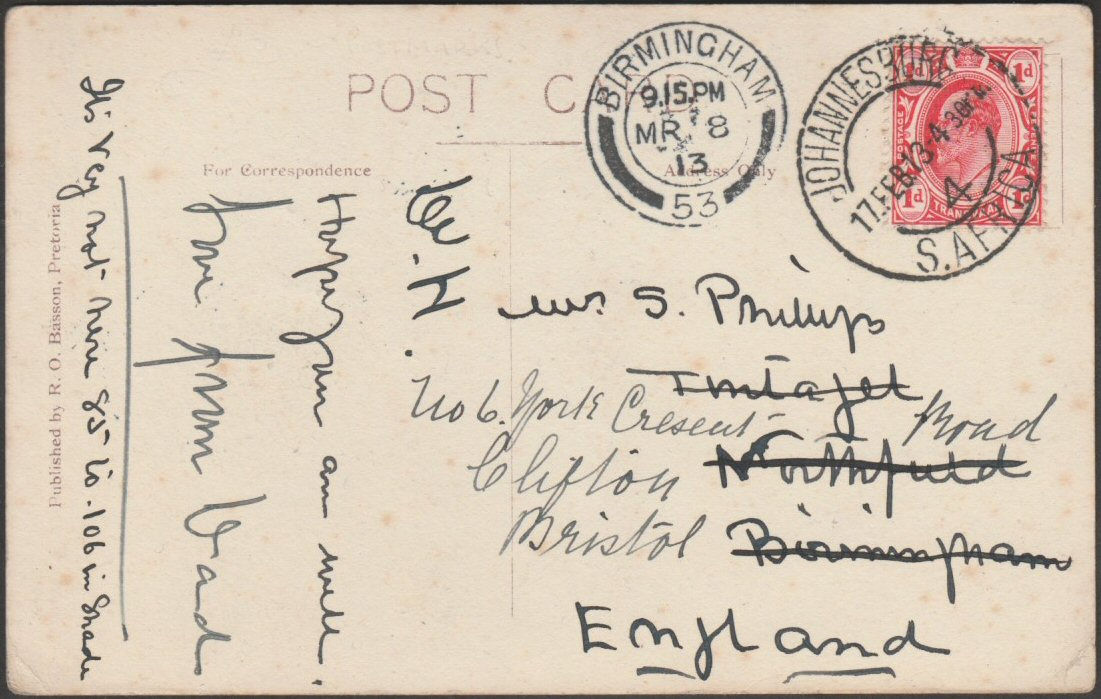 POST CARD
For Correspondence
Address Only
Published by R. O. Basson, Pretoria
BIRMINGHAM
9.15.PM
MR 8
13
53
JOHANNESBURG
17.FEB.13.4-30PM
4
S.AFRICA
1d
1d
POSTAGE
1d
TRANSVAAL
1d
W. H.
Hope you are well.
Love from Dad
It's very hot here 85 to. 106 in shade
Mrs S. Phillips
Tintagel
No 6. York Cresent Road
Clifton Northfield
Bristol Birmingham
England